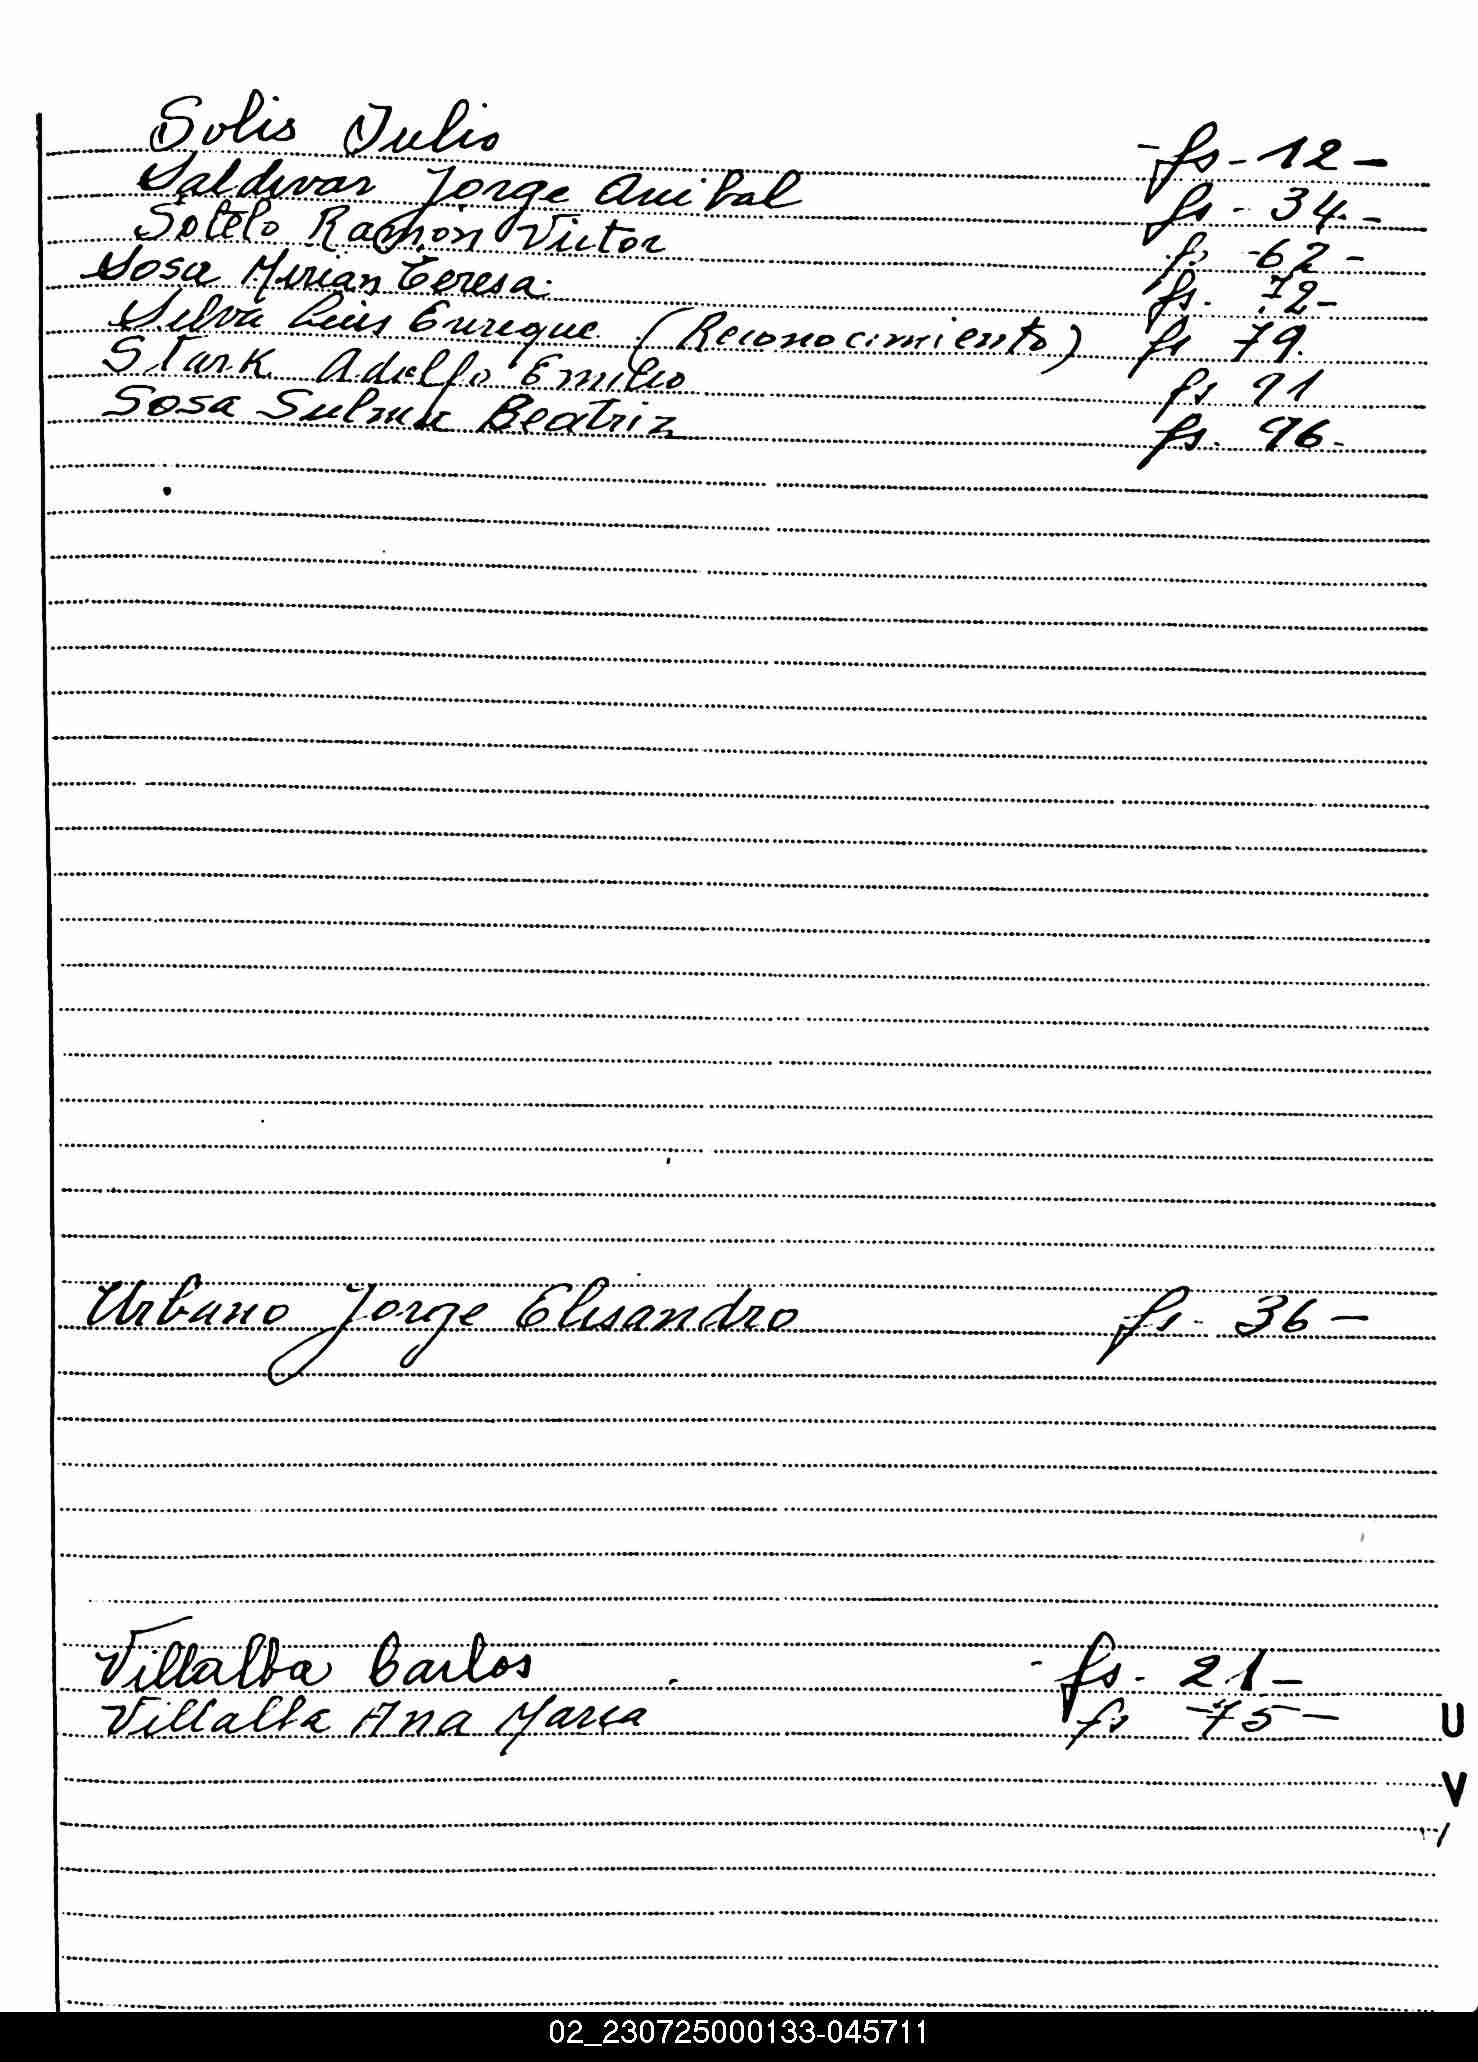 Solis Julio - fs - 12 -
Saldivar Jorge Anibal fs - 34 -
Sotelo Ramón Victor fs - 62 -
Sosa Mirian Teresa. fs. 72 -
Silva Luis Enrique. (Reconocimiento) fs 79.
Stark Adolfo Emilio fs 91
Sosa Sulma Beatriz fs. 96 -
Urbano Jorge Elisandro fs - 36 -
Villalba Carlos - fs - 21 -
Villalba Ana Maria fs 75 -
U
V
02_230725000133-045711